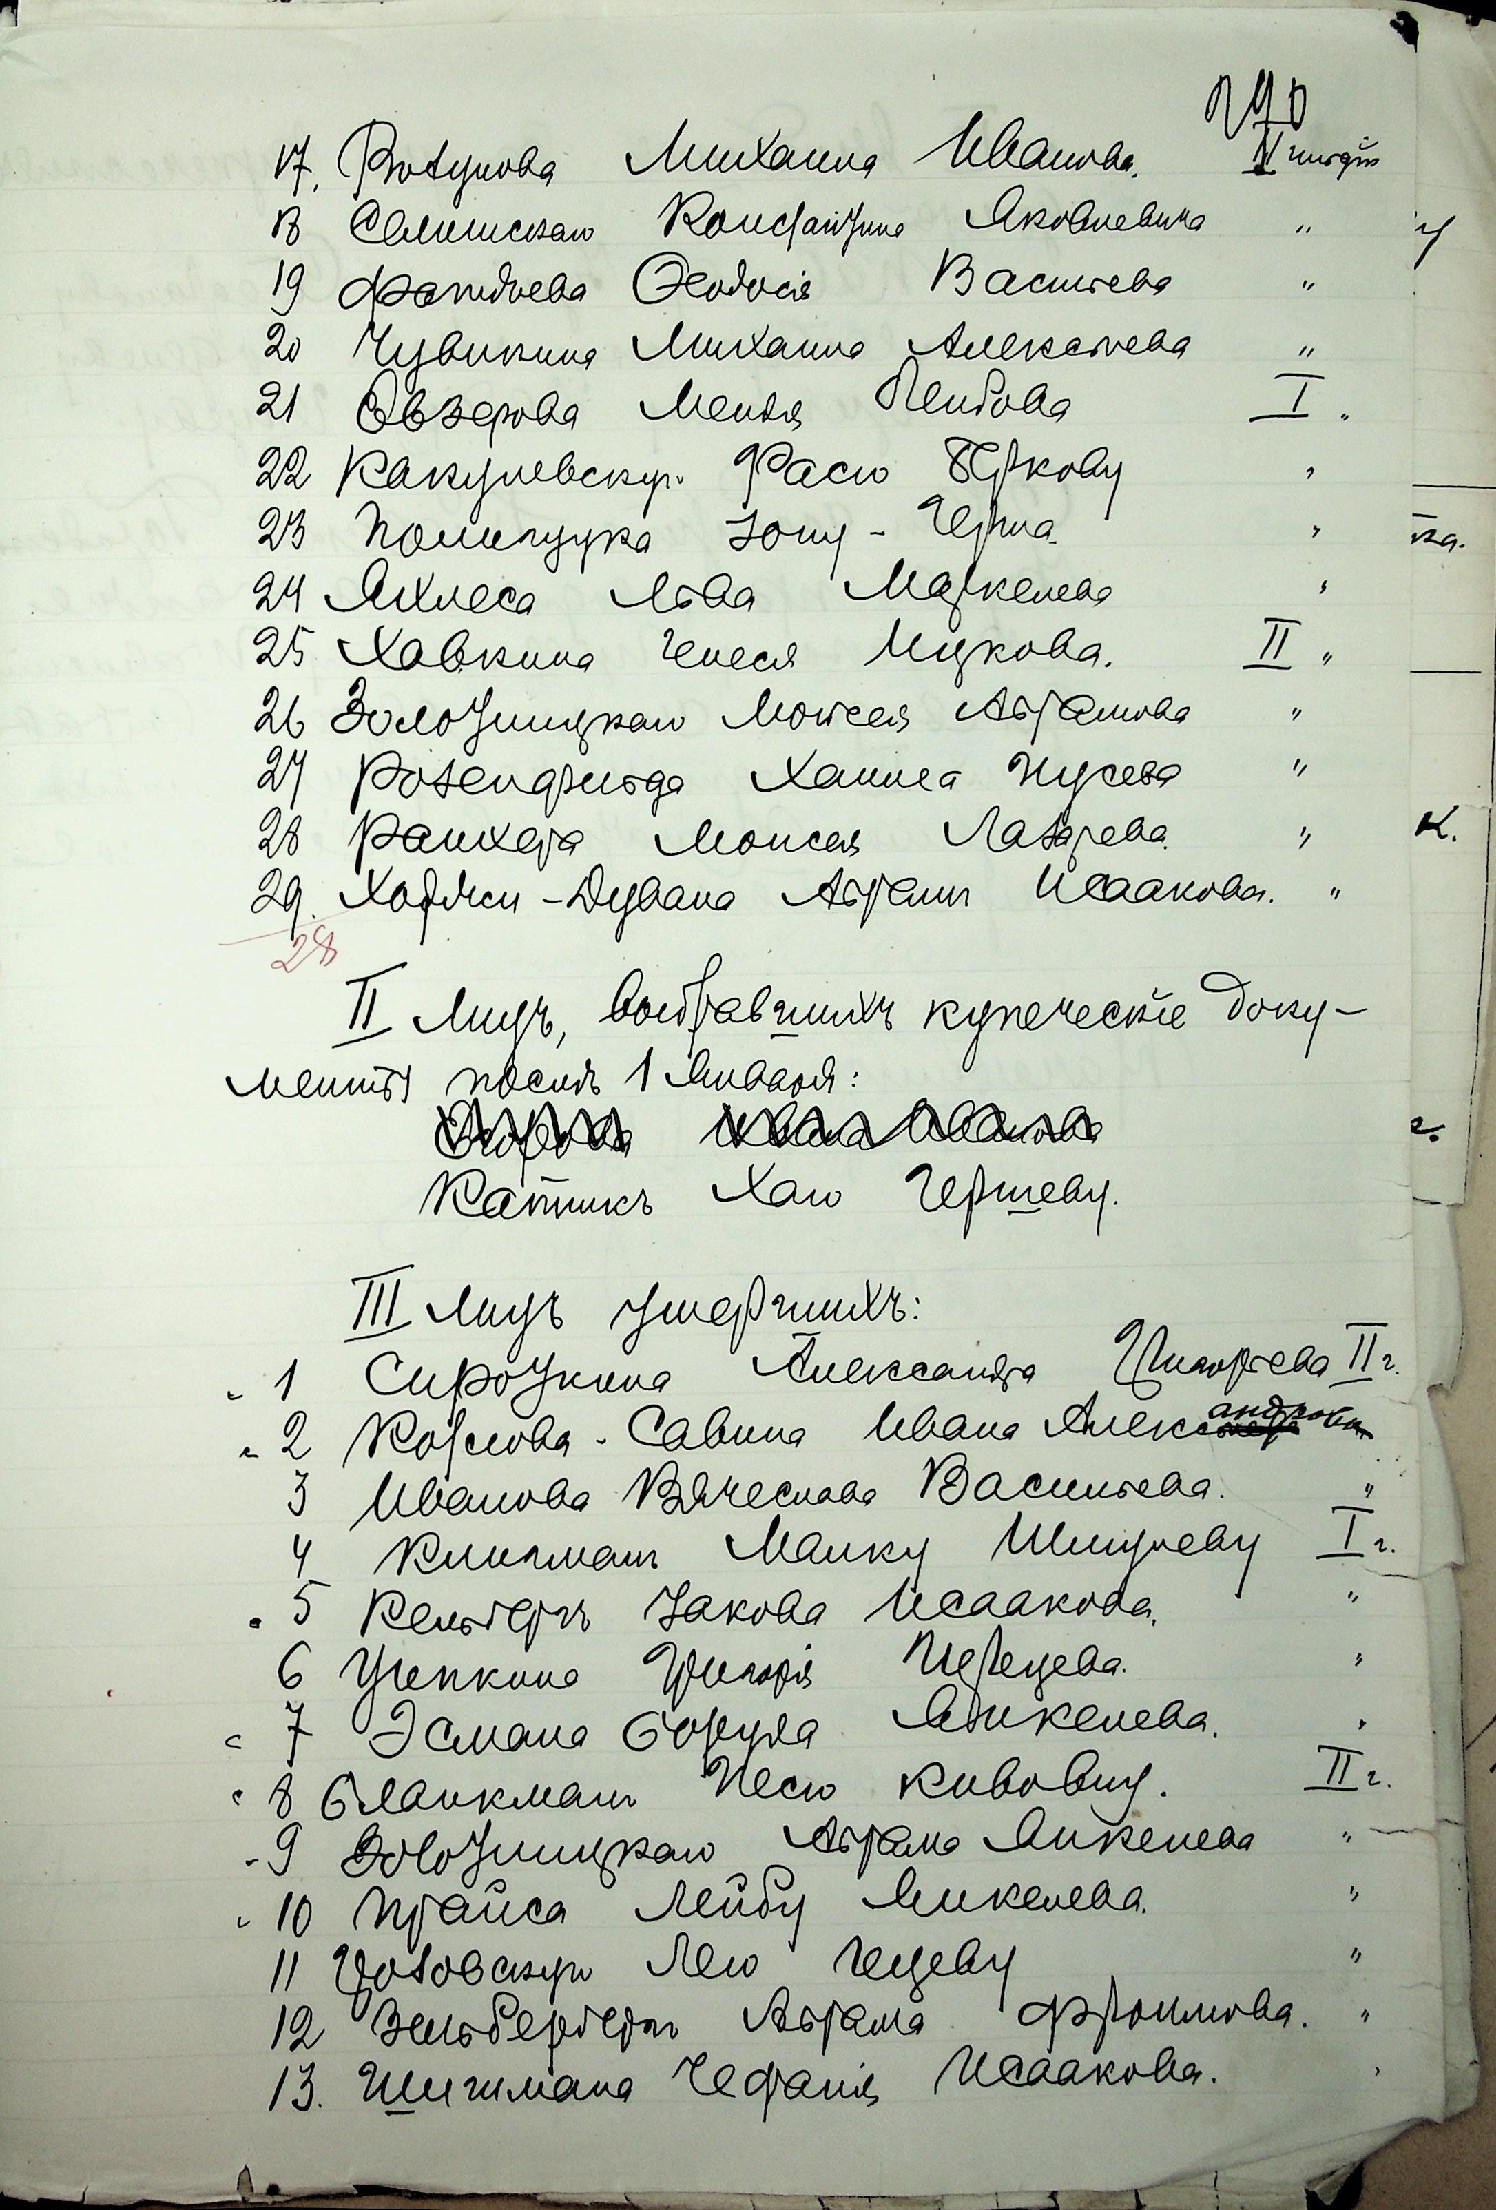 290
17. Михаила Иванова. II гильдіи
18 Константина Яковлевича "
19 Фаддѣева Ѳеодосія Васильева "
20 Чувикина Михаила Алексѣева "
21 Овзерова Менделя Лейбова I "
22 Какулевскую Фасю Беркову "
23 Полищука Іону-Герша "
24 Яхлеса Льва Маркелева "
25 Хавкина Генеся Ицкова. II "
26 Золотницкаго Моисея Абрамова "
27 Розенфельда Хаима Нусева "
28 Райхера Моисея Лазарева "
29. Ходжи-Дувана Абрама Исаакова. "
28
II Лицъ, выбравшихъ купеческіе доку-
менты послѣ 1 Января:
Капникъ Хаю Гершеву.
III Лицъ умершихъ:
1 Сироткина Александра Григорьева II г.
2 Савина Ивана Александрова
3 Иванова Вячеслава Васильева. "
4 Клигманъ Манку Шмулеву I г.
5 Кельтеръ Іакова Исаакова. "
6 Цыпкина Григорія Перецева. "
7 Эсмана Боруха Янкелева. "
8 Бланкманъ Песю Кивовну. II г.
9 Золотницкаго Абрама Янкелева "
10 Прайса Лейбу Янкелева. "
11 Лею Гецеву "
12 Абрама Фроимова. "
13. Шишмана Исаакова. "